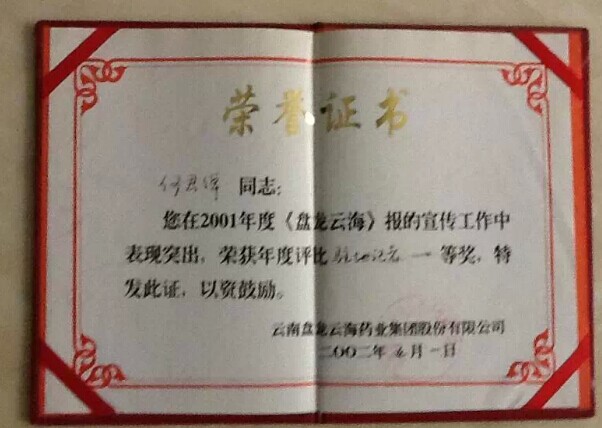 荣誉证书
同志：
您在2001年度《盘龙云海》报的宣传工作中
表现突出，荣获年度评比驻地记者一等奖，特
发此证，以资鼓励。
云南盘龙云海药业集团股份有限公司
二〇〇二年五月一日